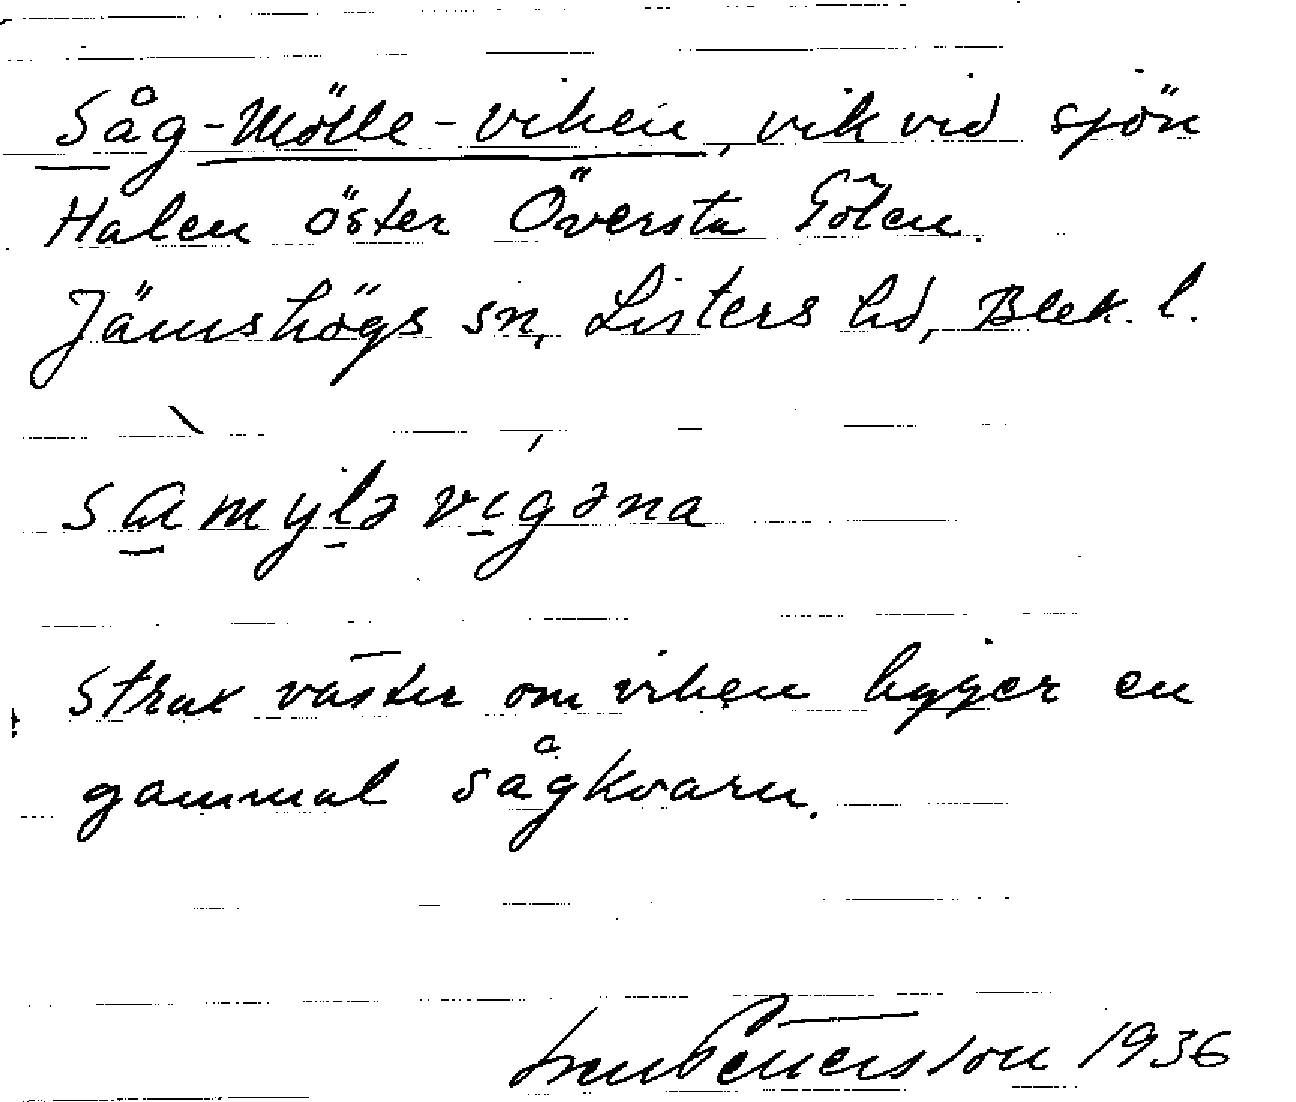 Såg-Mölle-viken, vik vid sjön
Halen öster Översta Gölen.
Jämshögs sn, Listers hd, Blek. l.
sɑmylə vigəna
Strax väster om viken ligger en
gammal sågkvarn.
Sven Petersson 1936